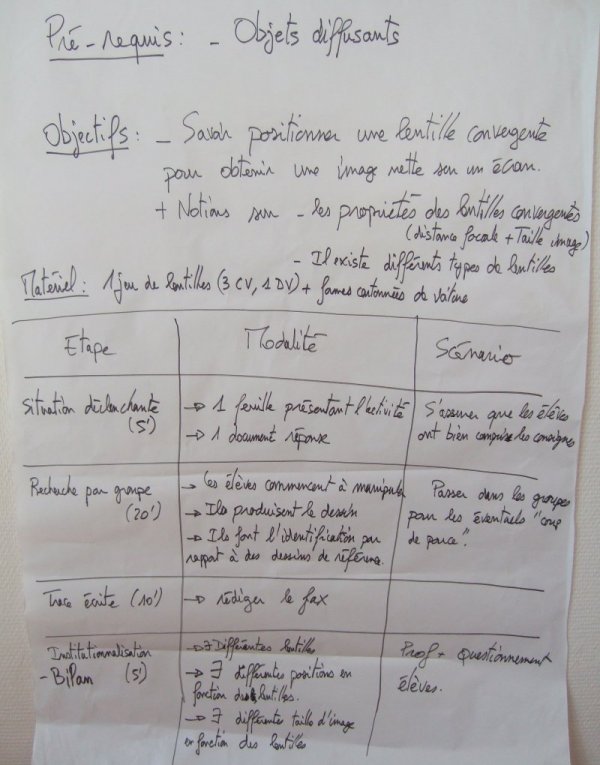 Pré-requis : - Objets diffusants
Objectifs : - Savoir positionner une lentille convergente
pour obtenir une image nette sur un écran.
+ Notions sur - les propriétés des lentilles convergentes
(distance focale + Taille image)
- Il existe différents types de lentilles
Matériel : 1 jeu de lentilles (3 CV, 1 DV) + formes cartonnées de voiture
Etape Modalité Scénario
Situation déclenchante
(5')
→ 1 feuille présentant l'activité
→ 1 document réponse
S'assurer que les élèves
ont bien compris les consignes
Recherche par groupe
(20')
→ Les élèves commencent à manipuler
→ Ils produisent le dessin
→ Ils font l'identification par
rapport à des dessins de référence.
Passer dans les groupes
pour les éventuels "coup
de pouce".
Trace écrite (10')
→ rédiger le fax
Institutionnalisation
- Bilan (5')
→ ∃ Différentes lentilles
→ ∃ différentes positions en
fonction des lentilles.
→ ∃ différentes taille d'image
en fonction des lentilles
Prof + questionnement
élèves.